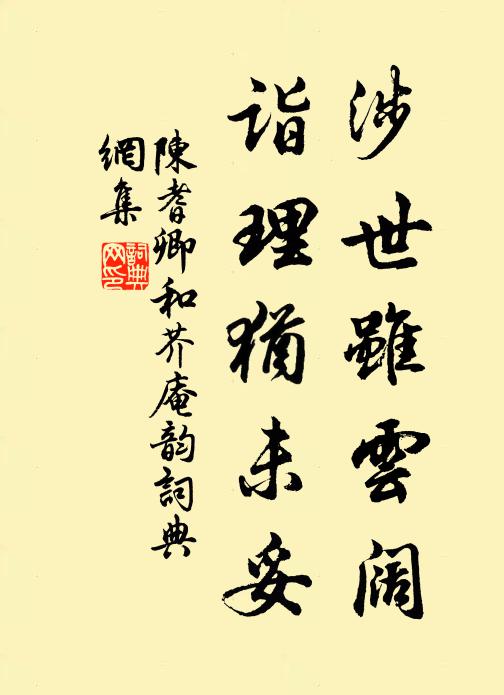 涉世雖雲阔
詣理猶未妥
陳耆卿和芥庵韵詞典
網集
詞典網印